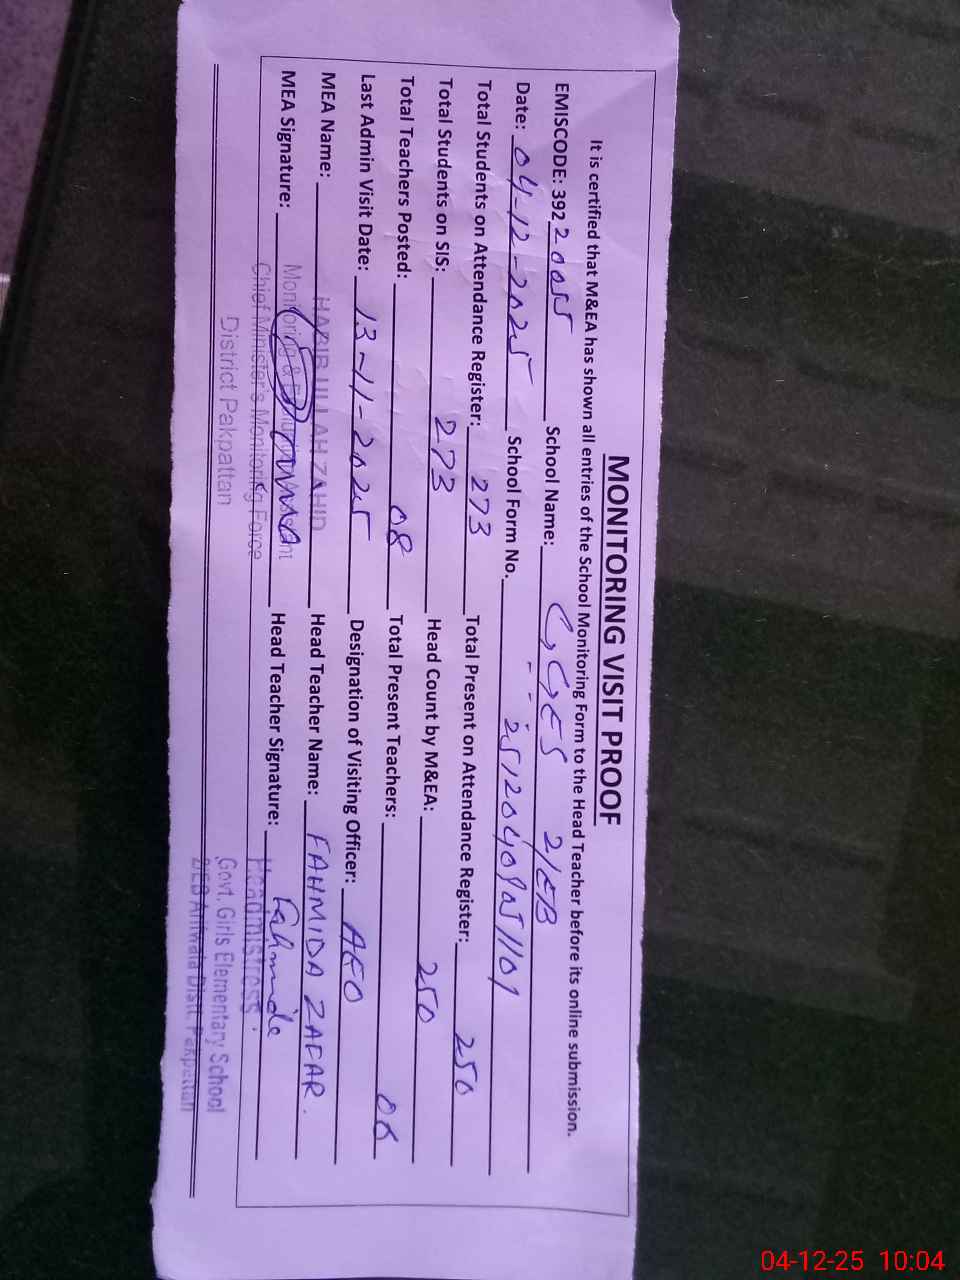 MONITORING VISIT PROOF
It is certified that M&EA has shown all entries of the School Monitoring Form to the Head Teacher before its online submission.
EMISCODE: 39220055 School Name: GGES 2/EB
Date: 04-12-2025 School Form No. 
Total Students on Attendance Register: 273 Total Present on Attendance Register: 250
Total Students on SIS: 273 Head Count by M&EA: 250
Total Teachers Posted: 08 Total Present Teachers:
Last Admin Visit Date: 13-11-2025 Designation of Visiting Officer: AEO
MEA Name: HABIB ULLAH ZAHID Head Teacher Name: FAHMIDA ZAFAR.
MEA Signature: Head Teacher Signature: Fahmida
Monitoring &
Chief Minister's Monitoring Force
District Pakpattan
Headmistress
Govt. Girls Elementary School
2EB Arifwala Distt. Pakpattan
04-12-25 10:04